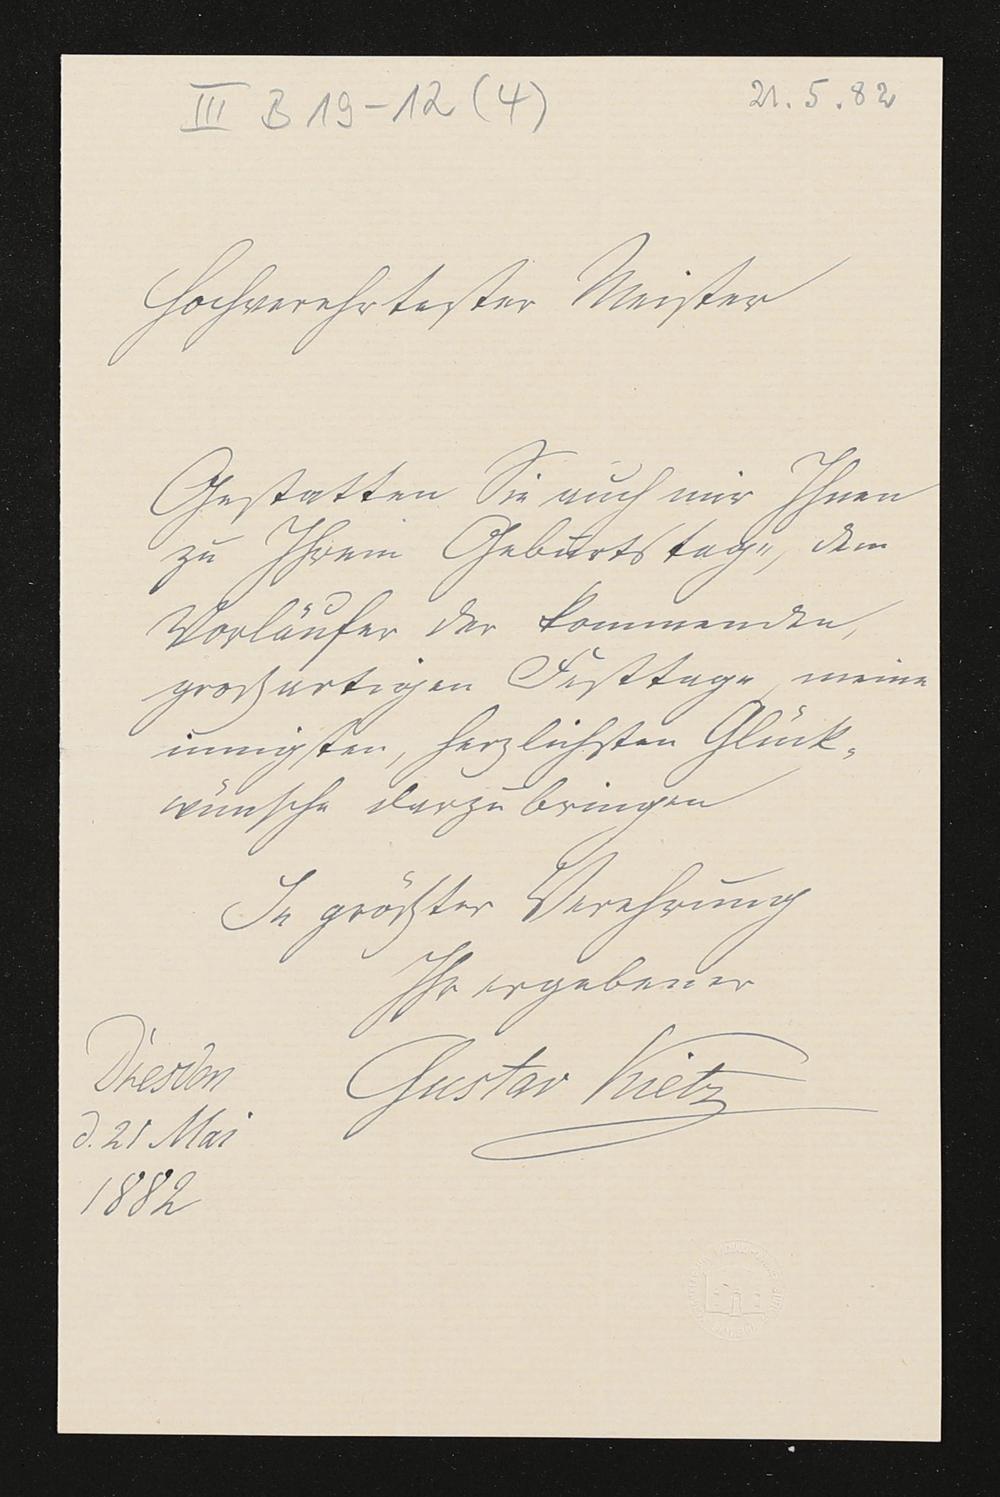 III B 19-12 (4)
21.5.82
Hochverehrtester Meister
Gestatten Sie auch mir Ihnen
zu Ihrem Geburtstage, dem
Vorläufer der kommenden,
großartigen Festtage meine
innigsten, herzlichsten Glück-
wünsche darzubringen
In größter Verehrung
Ihr ergebener
Gustav Kietz
Dresden
d. 21 Mai
1882